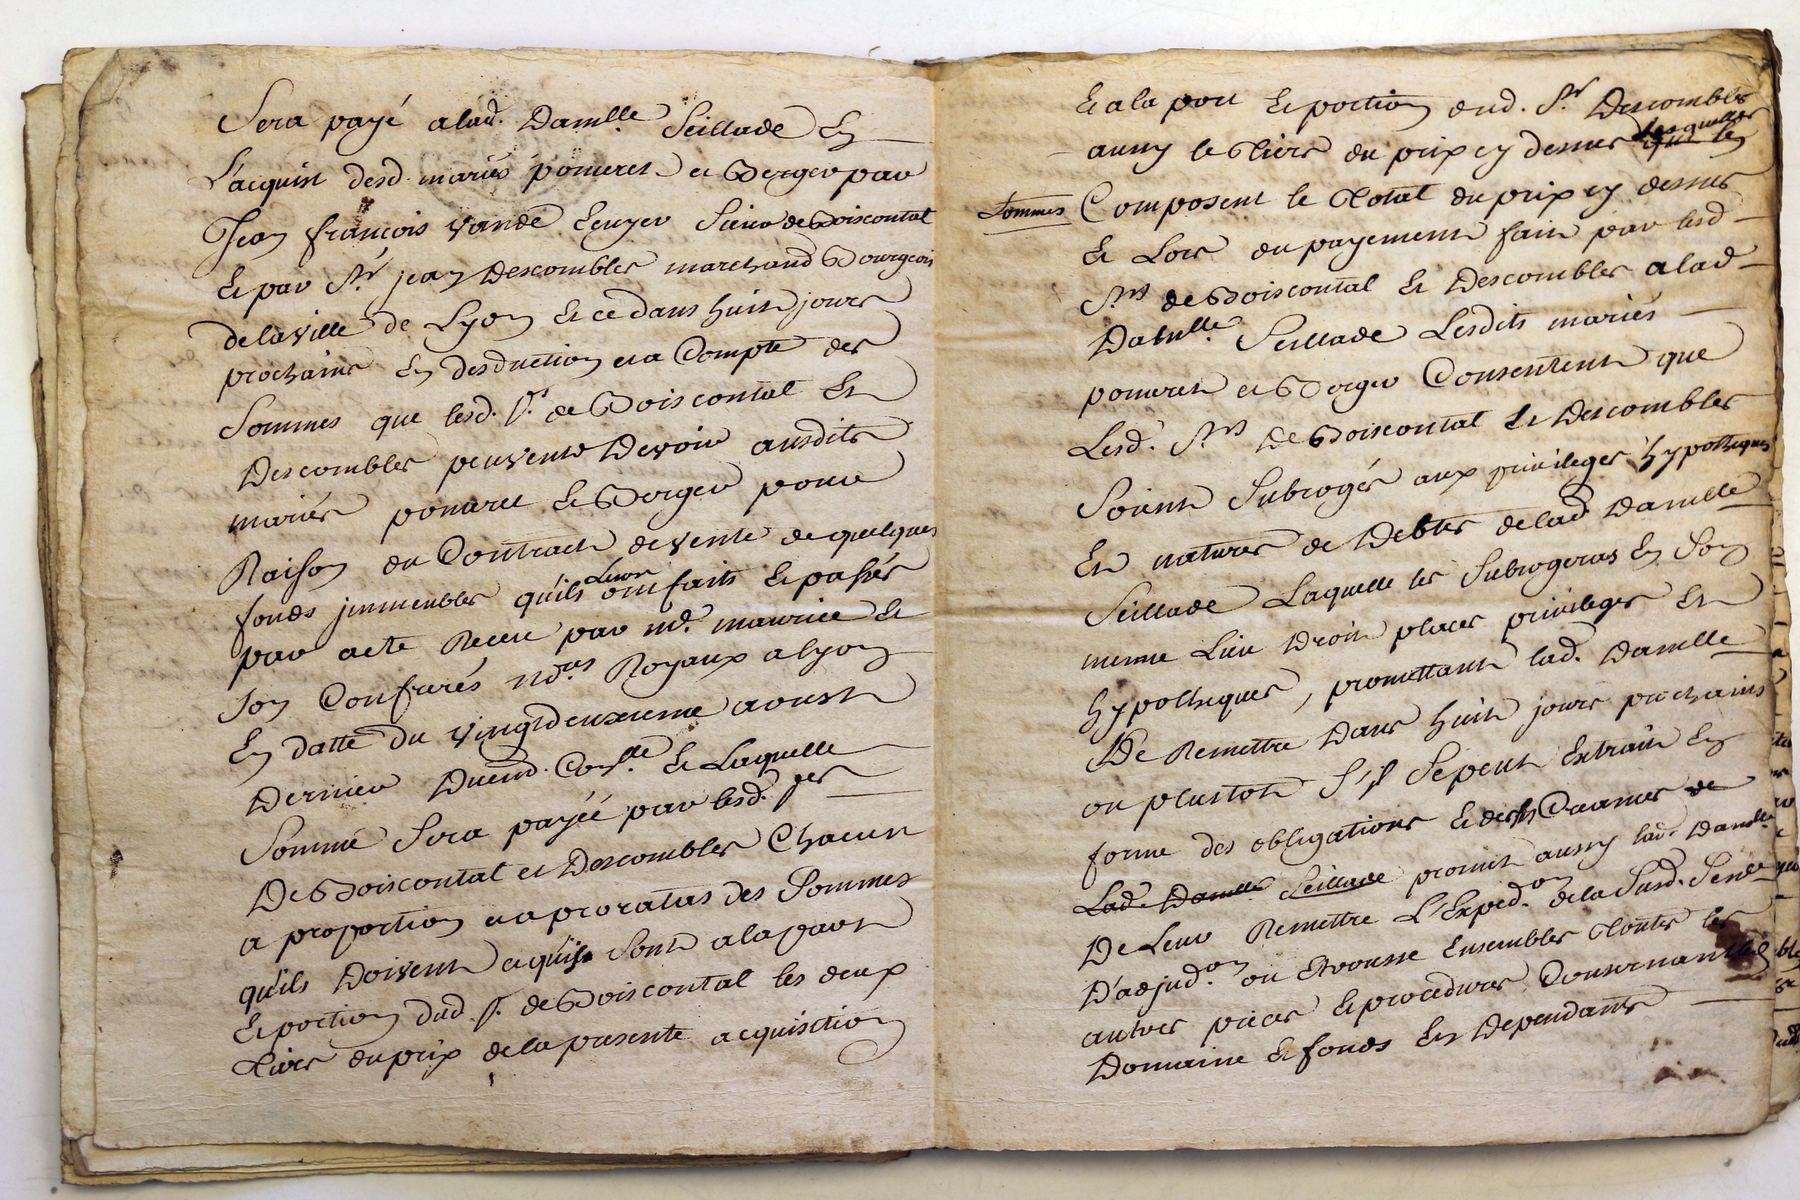 Sera payé a lad. Damlle. Seillade En
L'acquist desd. mariés pomeret et Berger par
Jean françois vande Ecuyer Sieur de Boiscontal
Et par Sr. jean Descombles marchand Bourgeois
de la ville de Lyon Et ce dans huit jours
prochains En desduction et a Compte des
Sommes que lesd. Srs. de Boiscontal Et
Descombles peuvent Devoir ausdits
mariés pomeret Et Berger pour
Raison du Contract de vente de quelques
fonds jmmeubles qu'ils Leur ont faits Et passés
par acte Receu par Me. maurice Et
Son Confrere nores Royaux a Lyon
En datte du vingtdeuxieme aoust
Dernier Et Laquelle
Somme Sera payée par lesd. srs
De Boiscontal et Descombles Chacun
a proportion et a proratas des Sommes
qu'ils Doivent a la part
Et portion dud. Sr. de Boiscontal les deux
tiers du prix de la presente acquisition
Et a la part Et portion dud. Sr Descombles
aussy le tiers du prix cy dessus lesquelles
Sommes Composent le total du prix cy dessus
Et Lors du payement fait par lesd
Srs de Boiscontal Et Descombles a lad
Damlle. Seillade Lesdits mariés
pomeret et Berger Consentent que
Lesd. Srs De Boiscontal Et Descombles
Soient Subrogés aux privileges hypotheques
Et natures de Debtes de lad Damlle
Seillade Laquelle les Subrogeras En Son
meme Lieu Droit places privileges Et
hypotheques, promettant lad. Damlle
De Remettre Dans huit jours prochains
ou plustot S'il Se peut Extrait En
forme des obligations Et de
Lad. Damlle. Seillade promet aussy lad. Damlle
De Leur Remettre L'Exped.on de la Susd. Sen.ce
D'adjud.on ou Trousse Ensembles toutes les
autres pieces Et procedures Consernant led
Domaine Et fonds En Dependants